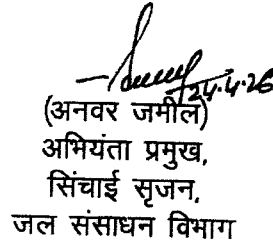 24.4.26
(अनवर जमील)
अभियंता प्रमुख,
सिंचाई सृजन,
जल संसाधन विभाग